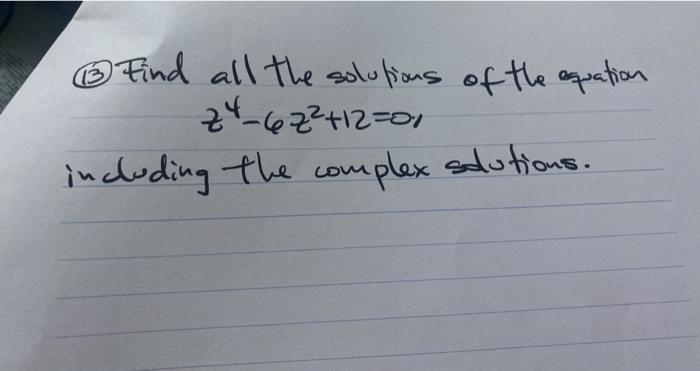 ⑬ Find all the solutions of the equation
z⁴-6z²+12=0,
including the complex solutions.